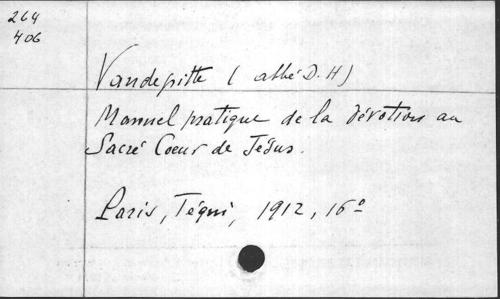 264
406
Vandepitte (abbé D. H)
Manuel pratique de la dévotion au
Sacré Coeur de Jésus.
Paris, Téqui, 1912, 16º